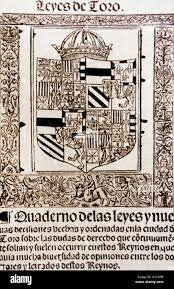 Leyes de Toro.
Quaderno de las leyes y nue
uas decisiones hechas y ordenadas en la ciudad de
Toro sobre las dudas de derecho que continuamente
se solian y suelen ocurrir en estos Reynos en que
auia mucha diuersidad de opiniones entre los do
tores y letrados destos Reynos.
alamy